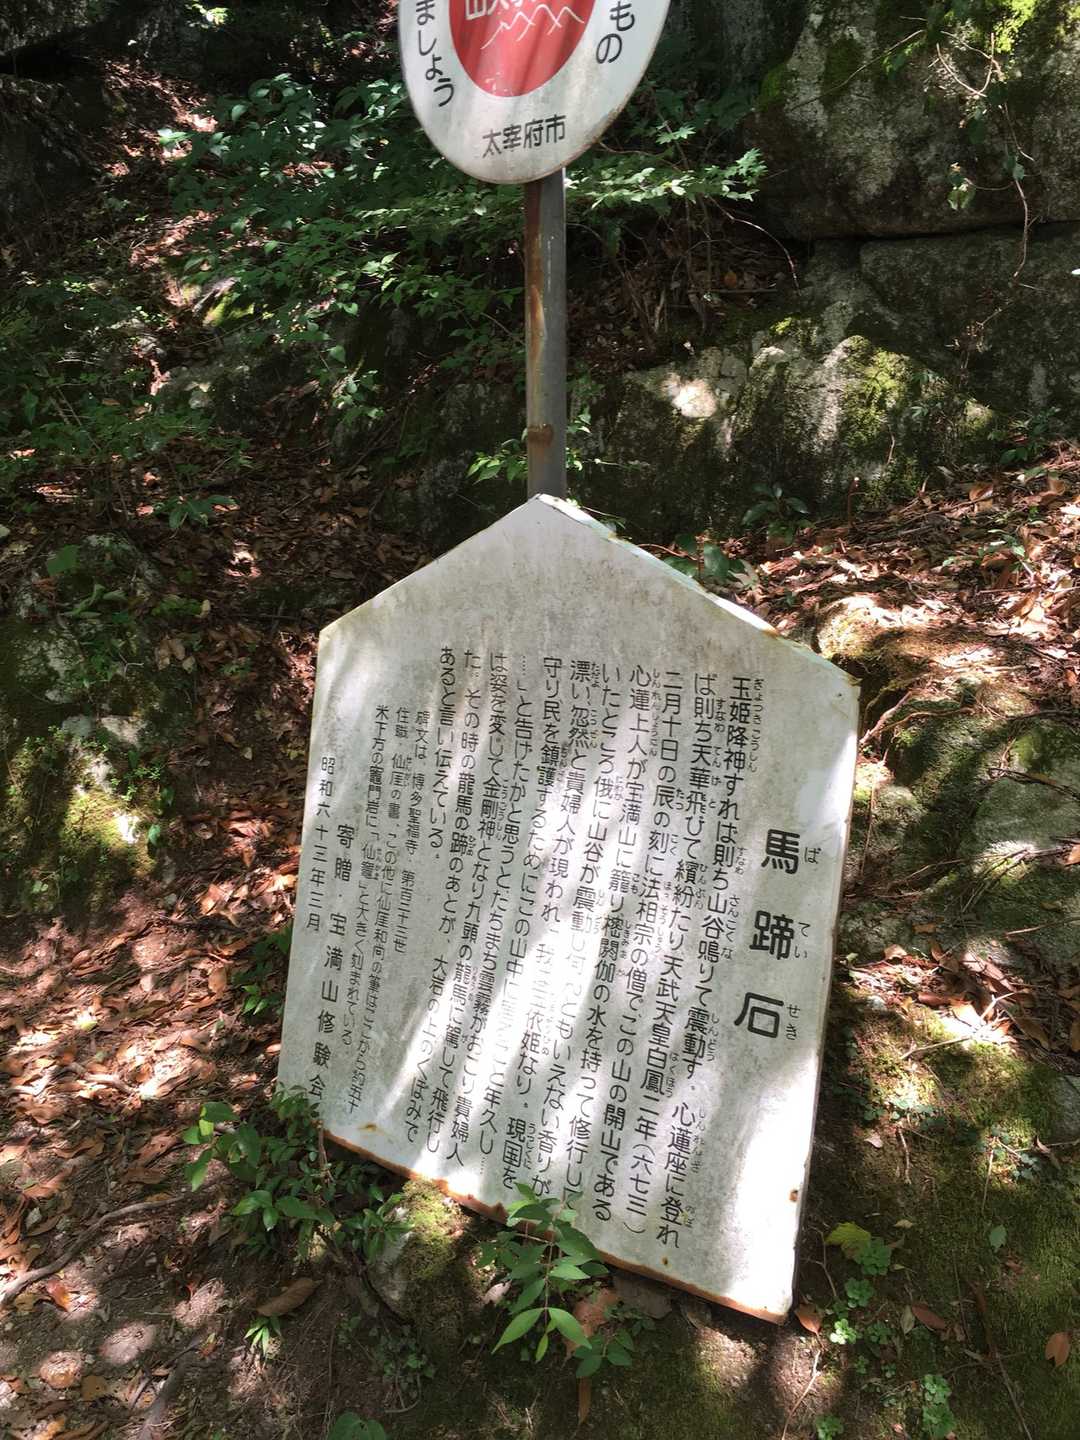 ましょう
もの
太宰府市
馬蹄石
ばていせき
玉姫降神すれば則ち山谷鳴りて震動す。心蓮座に登れ
ば則ち天華飛びて繽紛たり天武天皇白鳳二年(六七三)
二月十日の辰の刻に法相宗の僧でこの山の開山である
心蓮上人が宝満山に籠り樒閼伽の水を持って修行して
いたところ俄に山谷が震動し何んともいえない香りが
漂い、忽然と貴婦人が現われ「我は玉依姫なり。現国を
守り民を鎮護するためにこの山中に 年久し…
……」と告げたかと思うとたちまち雲霧がおこり貴婦人
は姿を変じて金剛神となり九頭の龍馬に駕して飛行し
た。その時の龍馬の蹄のあとが、大岩の上のくぼみで
あると言い伝えている。
碑文は、博多聖福寺、第百二十三世
住職、仙厓の書、この他に仙厓和尚の筆はここから約五十
米下方の竈門岩に「仙竈」と大きく刻まれている
昭和六十三年三月
寄贈 宝満山修験会